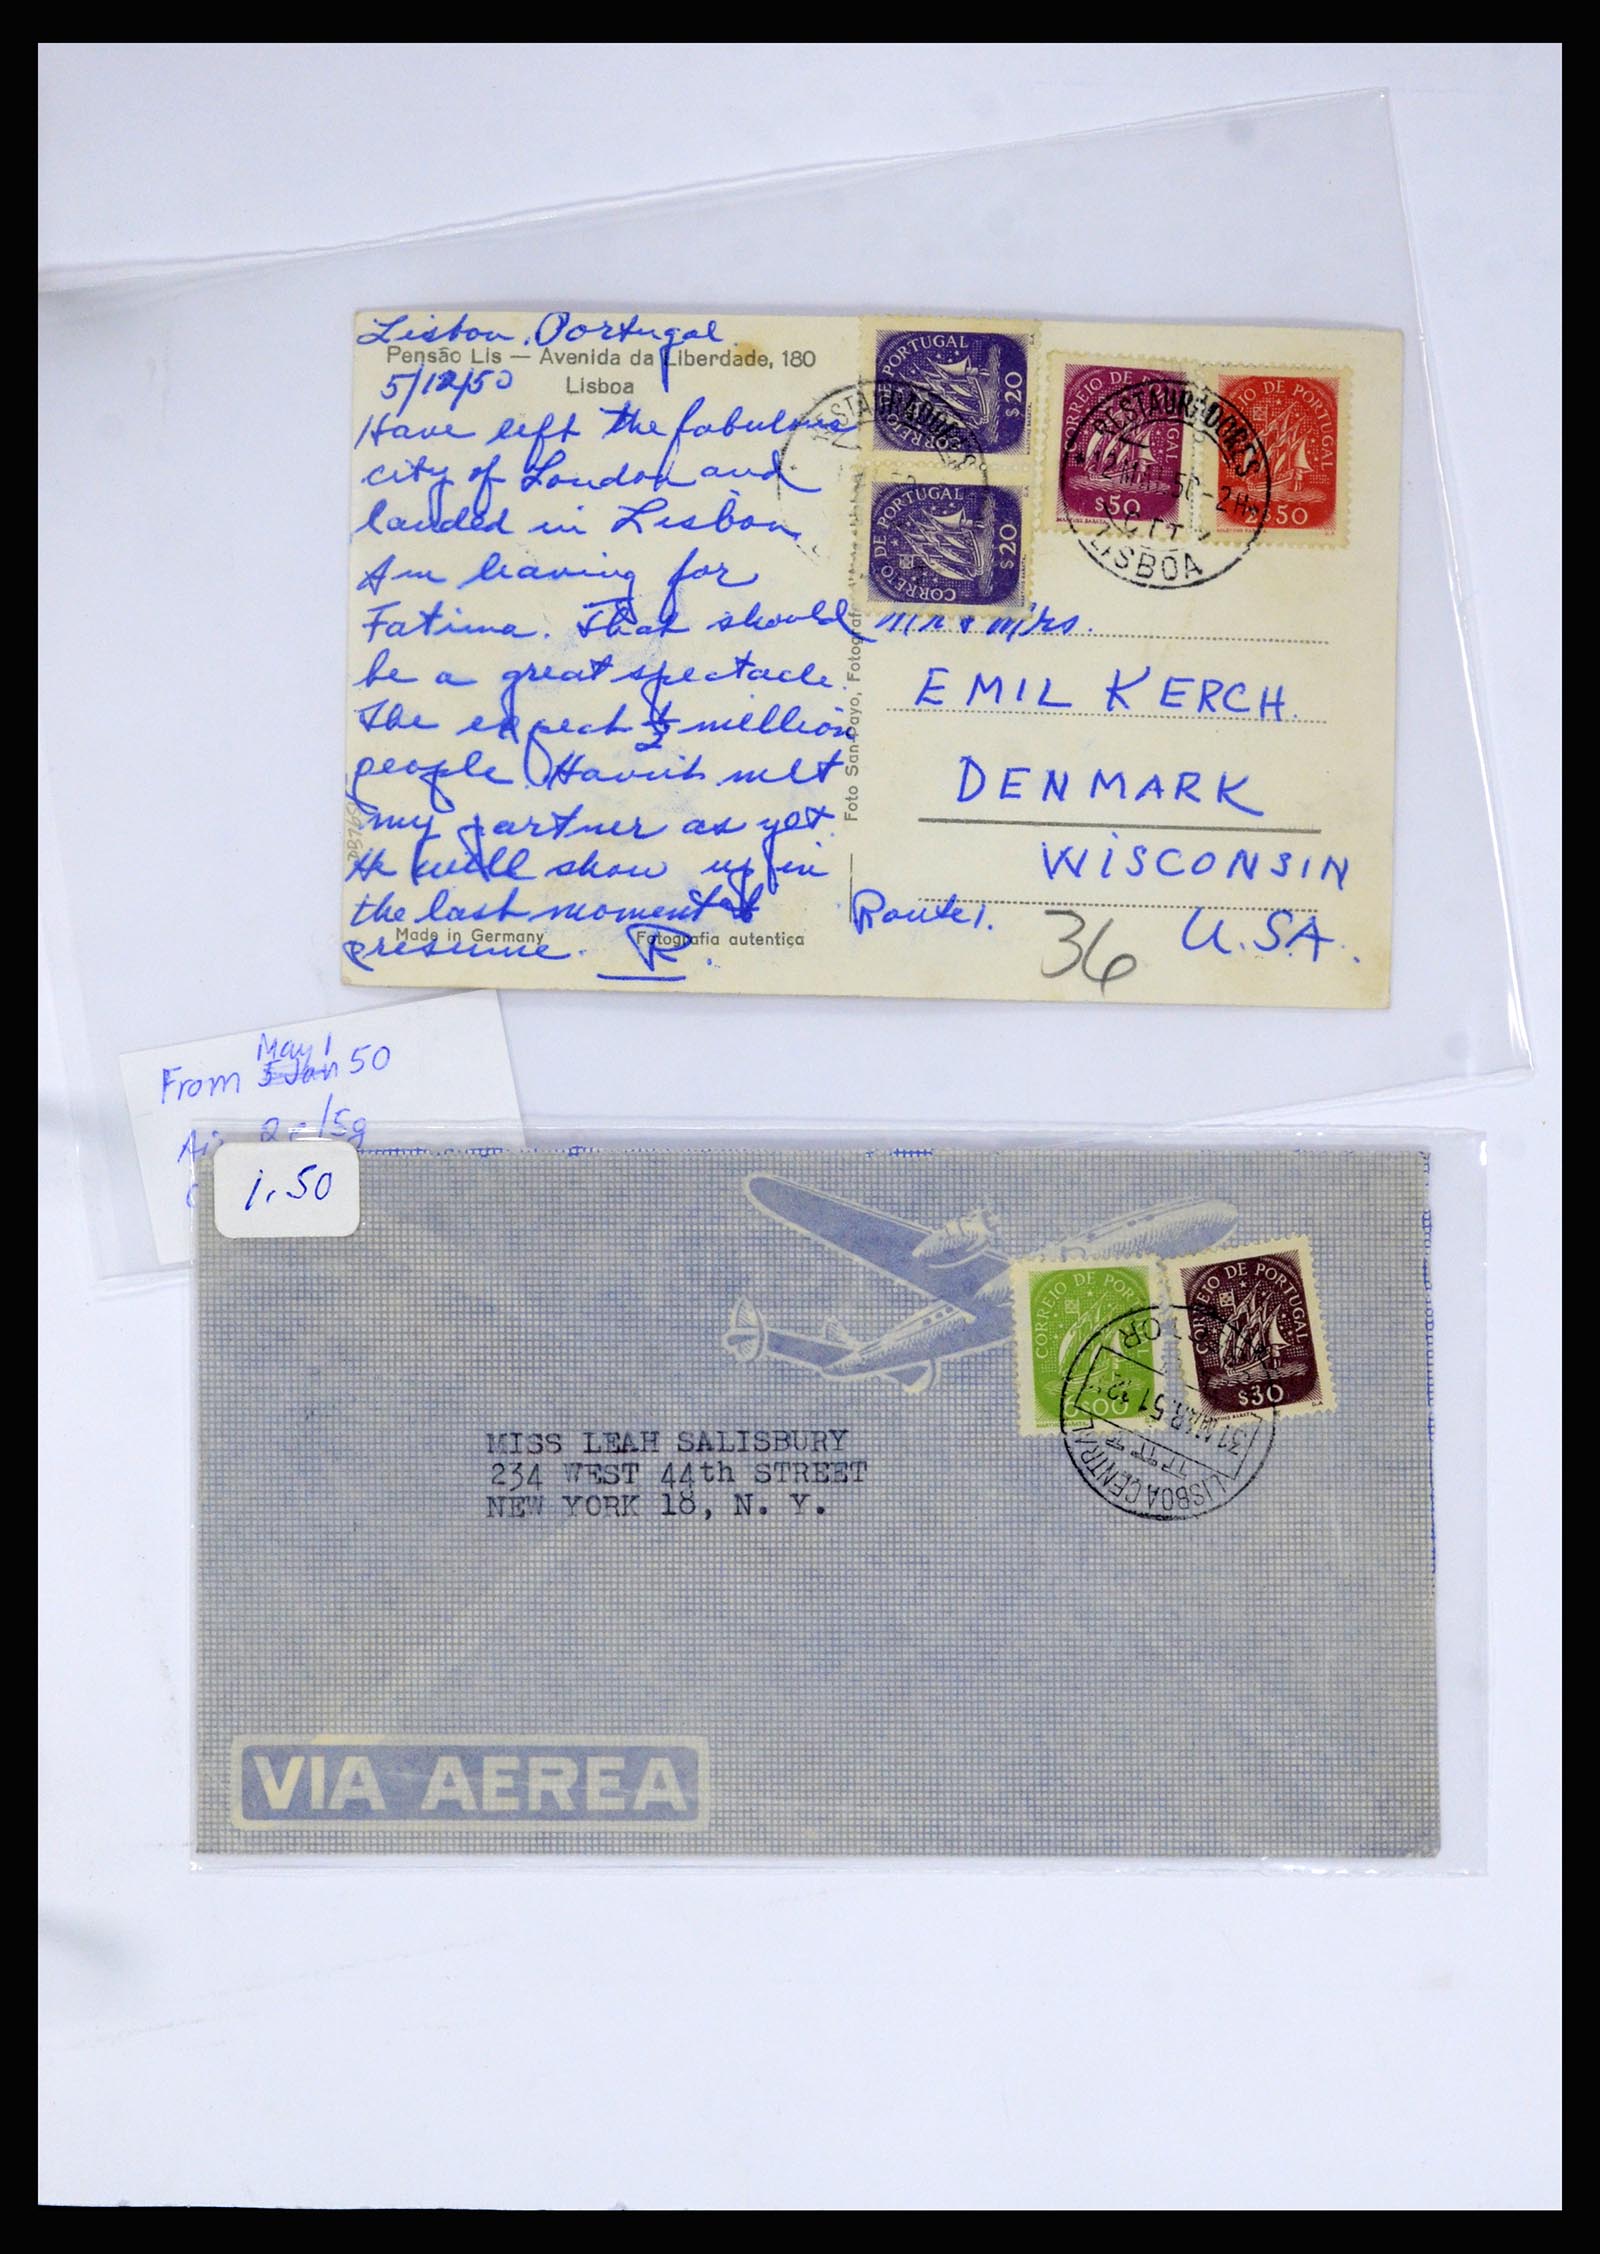 Lisbon, Portugal.
Pensão Lis — Avenida da Liberdade, 180
Lisboa
5/12/50
Have left the fabulous
city of London and
landed in Lisbon.
Am leaving for
Fatima. That should
be a great spectacle.
The expect ½ million
people. Havent met
my partner as yet.
He will show up in
the last moment
presume. R.
Made in Germany
Fotografia autentica
Foto San-Payo, Fotograf
CORREIO DE PORTUGAL
$20
CORREIO DE PORTUGAL
$20
CORREIO DE PORTUGAL
$50
MARTINS BARATA
DE PORTUGAL
2$50
RESTAURADORES
RESTAURADORES
12 MAI. 50 - 2H
CTT
LISBOA
Mr & Mrs.
EMIL KERCH.
DENMARK
WISCONSIN
Route 1.
U.S.A.
36
May 1
From 5 Jan 50
2 /5g
1.50
CORREIO DE PORT
00
CORREIO DE PORTUGAL
$30
31 MAR. 51
LISBOA CENTRAL
MISS LEAH SALISBURY
234 WEST 44th STREET
NEW YORK 18, N. Y.
VIA AEREA